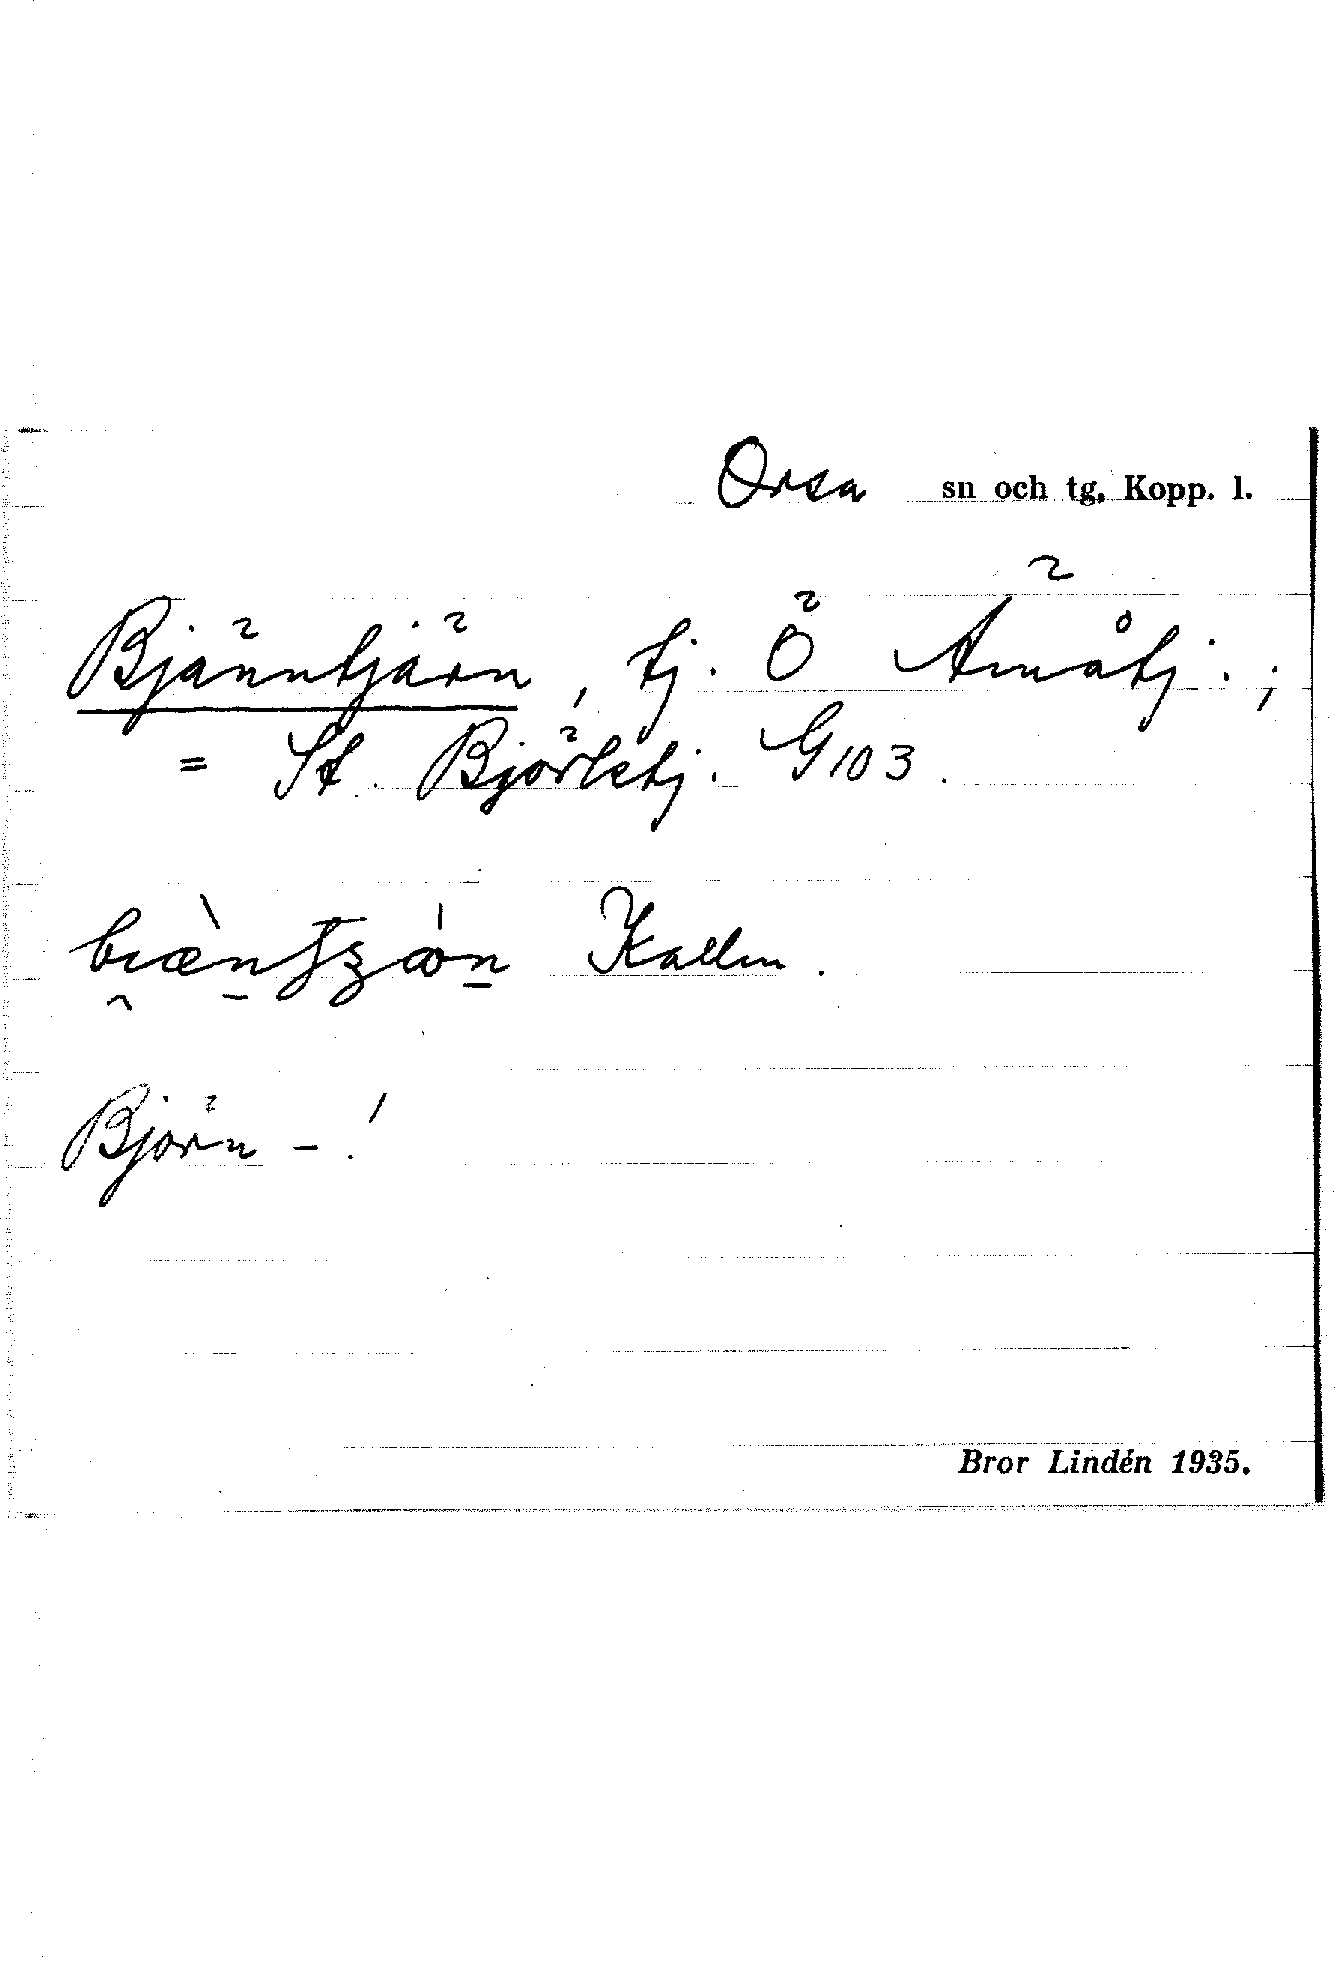 Orsa sn och tg. Kopp. l.
Bjänntjärn, tj. Ö Ämåtj.;
= St. Björktj. G103.
Kallm.
Björn - !
Bror Lindén 1935.